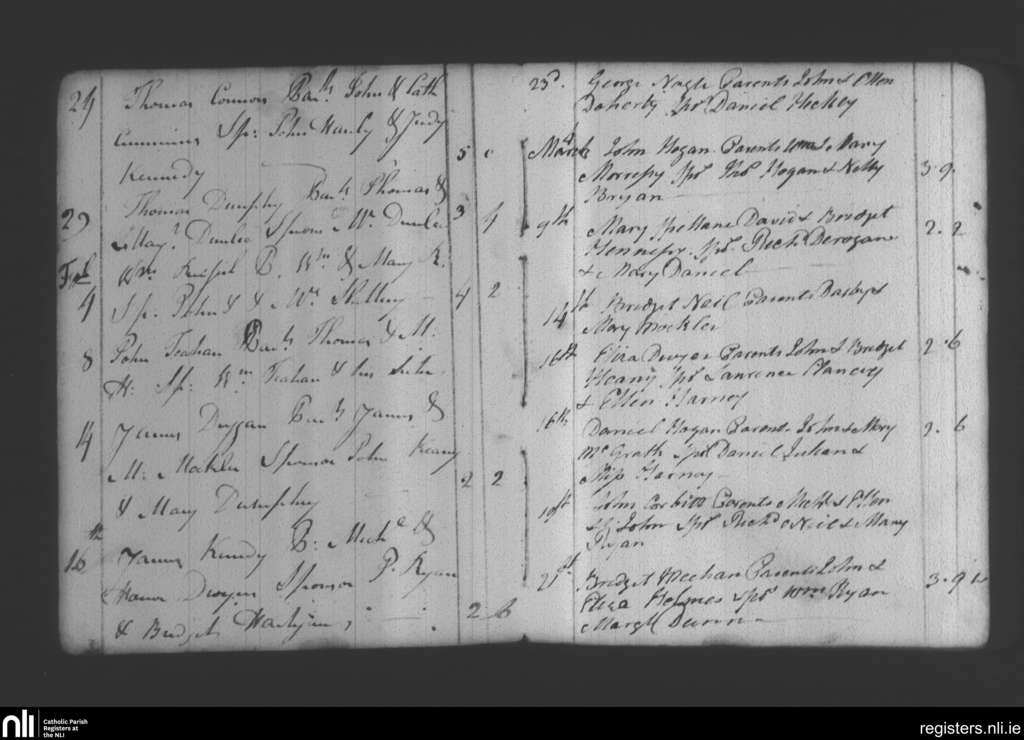 24 Thomas Connors Par.ts John & Cath
Cummins Sp: John Hanly & Judy
Kennedy 5 0
29 Thomas Dumphy Par.ts Thomas &
Mary Sponsr Wm 3 4
Feb Wm B. Wm & Mary R.
4 Sp: John & Mry 4 2
8 John Teahan Par.ts Thomas & M.
H: Sp: Wm Teahan & his Sister
14 James Duggan Par.ts James &
M: Sponsor John Keany
& Mary Dumphy 2 2
16th James Kennedy P: Michl &
Dwyer Sponsor P. Ryan
& Bridget 2 6
23d. George Nagle Parents John & Ellen
Doherty Spr Daniel Hickey
March 4 John Hogan Parents Wm & Mary
Morresy Spr Thos Hogan & Nelly
Bryan 3 . 9.
9th Mary Parents David & Bridget
Hennessy. Spr. Richd Derogane
& Mary Daniel 2 . 2
14th Bridget Neil Parents Darby &
Mary Mockler
16th Eliza Dwyer Parents John & Bridget
Heany Spr Laurence Clancey
& Ellen Harney 2 . 6
16th Daniel Hogan Parents John & Mary
McGrath Spr Daniel &
Harney 2 . 6
19th John Corbitt Parents Michl & Ellen
John Spr Richd Neil & Mary
Ryan
21st Bridget Meehan Parents John &
Eliza Holmes Spr Wm Ryan
Margt Dunn 3 . 9
nli
Catholic Parish
Registers at
the NLI
registers.nli.ie